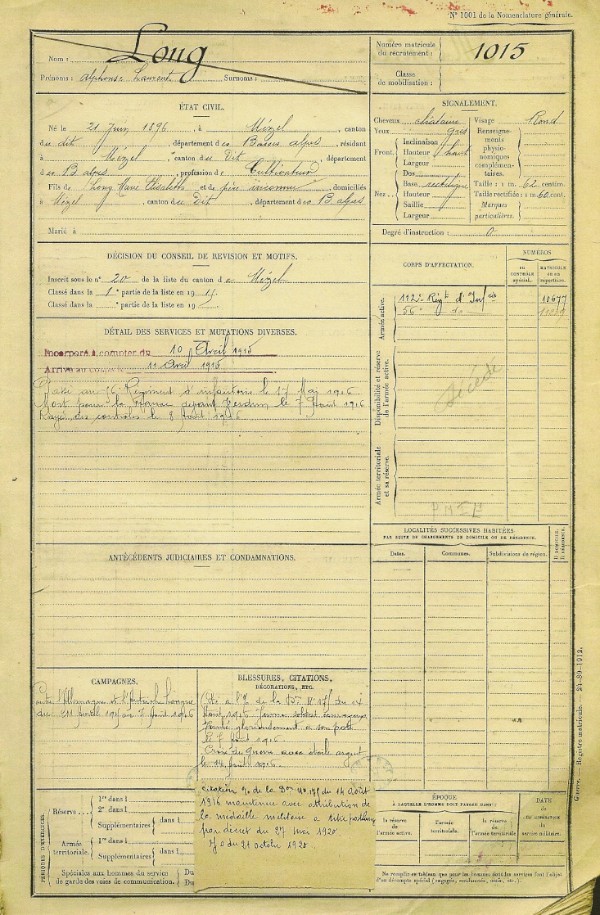 N° 1001 de la Nomenclature générale.
Nom : Long
Prénoms : Alphonse Laurent Surnoms :
Numéro matricule du recrutement : 1015
Classe de mobilisation :
ÉTAT CIVIL.
Né le 21 Juin 1896, à Mézel, canton
du dit, département des Basses Alpes, résidant
à Mézel, canton du Dit, département
des B. Alpes, profession de Cultivateur
Fils de et de père inconnu, domiciliés
à Mézel, canton du Dit, département des B. Alpes
Marié à
SIGNALEMENT.
Cheveux châtains Visage Rond
Yeux gris
Front. Inclinaison
Hauteur haut
Largeur
Nez. Dos
Base rectiligne
Hauteur
Saillie
Largeur
Renseignements physionomiques complémentaires.
Taille : 1 m. 62 centim.
Taille rectifiée : 1 m. 60 cent.
Marques particulières.
Degré d'instruction : 0
DÉCISION DU CONSEIL DE REVISION ET MOTIFS.
Inscrit sous le n° 20 de la liste du canton de Mézel
Classé dans la 1e partie de la liste en 1915
Classé dans la partie de la liste en 19
CORPS D'AFFECTATION.
NUMÉROS
AU CONTRÔLE spécial.
MATRICULE ou au répertoire.
Armée active.
112e Régt d'Inf ie 12677
56e do
Disponibilité et réserve de l'armée active.
Décédé
Armée territoriale et sa réserve.
DÉTAIL DES SERVICES ET MUTATIONS DIVERSES.
Incorporé à compter du 10 Avril 1915
Arrivé au corps le 11 Avril 1915
Passé au Régiment d'infanterie le 17 Mai 1916
Mort pour la France devant le 7 Août 1916
Rayé des contrôles le 8 Août 1916
ANTÉCÉDENTS JUDICIAIRES ET CONDAMNATIONS.
LOCALITÉS SUCCESSIVES HABITÉES
PAR SUITE DE CHANGEMENTS DE DOMICILE OU DE RÉSIDENCE.
Dates.
Communes.
Subdivisions de région.
D. DOMICILE.
R. RÉSIDENCE.
CAMPAGNES.
Contre l'Allemagne et l'Autriche Hongrie
du 11 Avril 1915 au 7 Août 1916
BLESSURES, CITATIONS,
DÉCORATIONS, ETC.
Cité à l'O. de la
Août 1916 Jeune soldat courageux
tombé glorieusement à son poste
le 7 Août 1916
Croix de guerre avec étoile argent
le 14 Août 1916.
citation du 14 août
1916 maintenue avec attribution de
la médaille militaire à titre posthume
par décret du 27 1920
J.O du 21 octobre 1920
PÉRIODES D'EXERCICES.
Réserve :
1re dans l
2e dans l
Supplémentaires dans l
Armée territoriale.
1re dans l
Supplémentaires dans l
Spéciales aux hommes du service de garde des voies de communication. Du
Du
ÉPOQUE
À LAQUELLE L'HOMME DOIT PASSER DANS :
la réserve de l'armée active.
l'armée territoriale.
la réserve de l'armée territoriale.
DATE DE LA libération du service militaire.
Guerre. — Registre matricule. 24-89-1912.